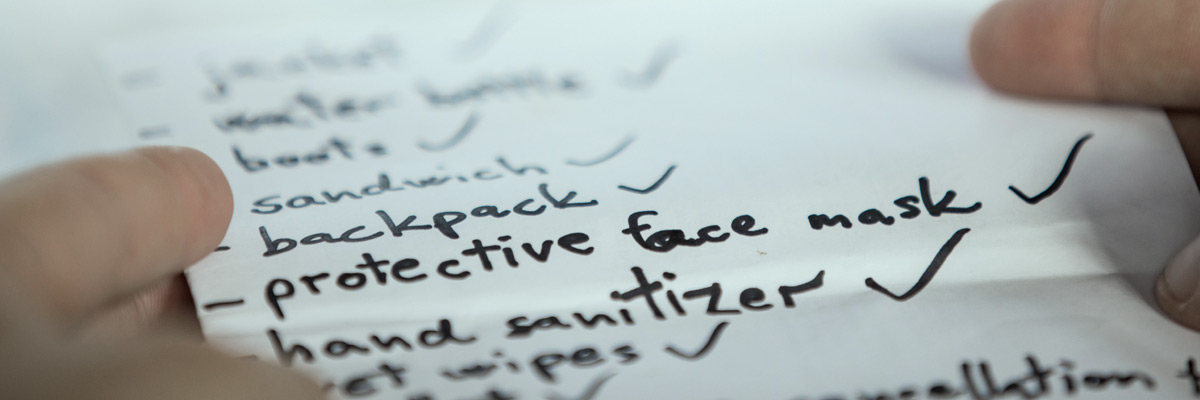 - jacket ✓
- water bottle ✓
boots ✓
sandwich ✓
- backpack ✓
- protective face mask ✓
- hand sanitizer ✓
wet wipes ✓